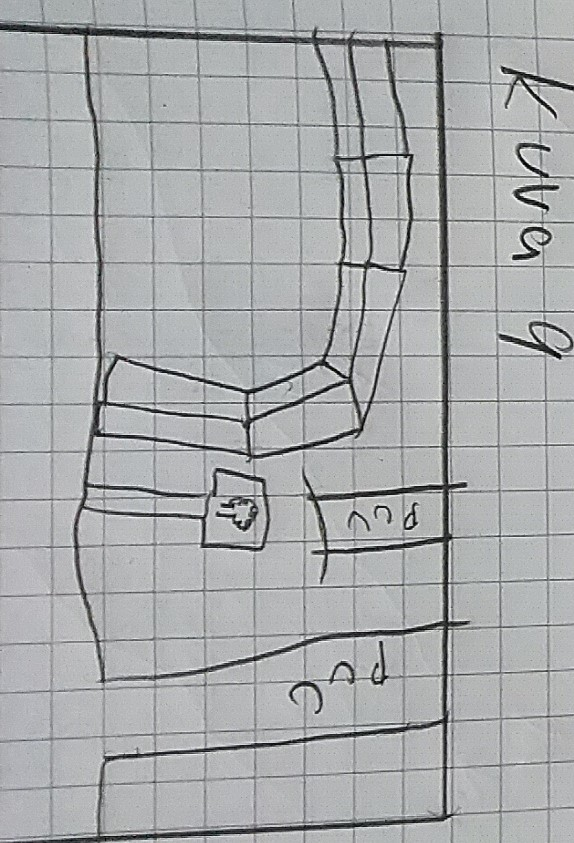 Kuva 9
PCC
PCC